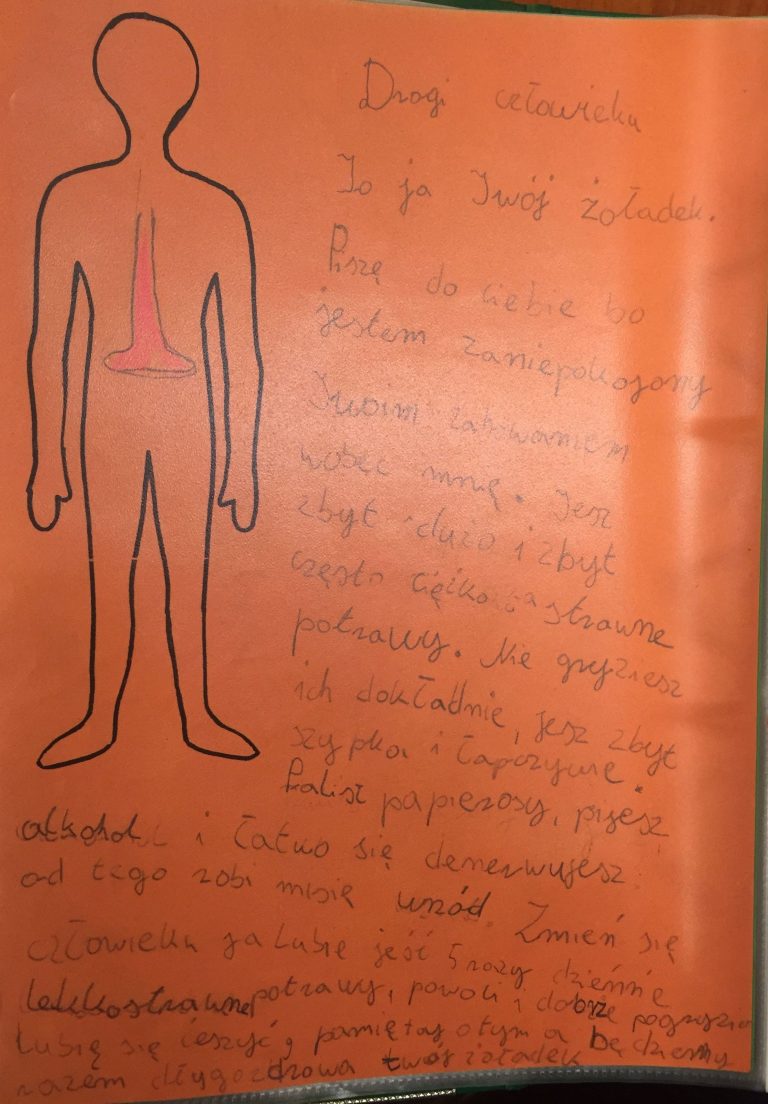 Drogi człowieku
To ja Twój żoładek.
Piszę do ciebie bo
jestem zaniepokojony
Twoim zahowaniem
wobec mnię. Jesz
zbyt dużo i zbyt
często ciężko strawne
potrawy. Nie gryziesz
ich dokładnie, jesz zbyt
szypko i łapczywie.
Palisz papierosy, pijesz
alkohol i łatwo się denerwujesz
od tego robi misię wrzód. Zmień się
człowieku ja lubie jeść 5 razy dziennie
lekkostrawne potrawy, powoli i dobrze
lubię się cieszyć, pamiętaj otym a będziemy
razem długo zdrowa twój żołądek